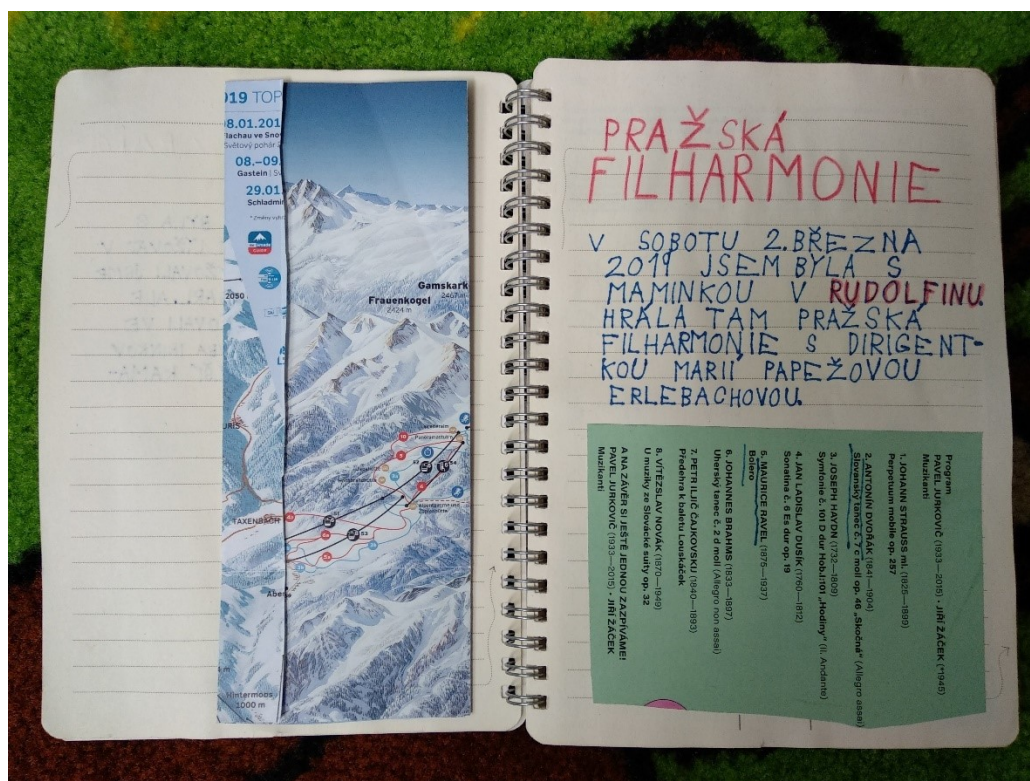 019 TOP
8.01.201
Flachau ve Snow
Světový pohár
08.–09.
Gastein | Sv
29.01
Schladmin
2050
Gamskark
2467m
Frauenkogel
2424 m
TAXENBACH
Hintermoos
1000 m
PRAŽSKÁ
FILHARMONIE
V SOBOTU 2. BŘEZNA
2019 JSEM BYLA S
MAMINKOU V RUDOLFINU.
HRÁLA TAM PRAŽSKÁ
FILHARMONIE S DIRIGENT-
KOU MARIÍ PAPEŽOVOU
ERLEBACHOVOU.
Program
PAVEL JURKOVIČ (1933—2015) • JIŘÍ ŽÁČEK (*1945)
Muzikanti
1. JOHANN STRAUSS ml. (1825—1899)
Perpetuum mobile op. 257
2. ANTONÍN DVOŘÁK (1841—1904)
Slovanský tanec č. 7 c moll op. 46 „Skočná“ (Allegro assai)
3. JOSEPH HAYDN (1732—1809)
Symfonie č. 101 D dur Hob.I:101 „Hodiny“ (II. Andante)
4. JAN LADISLAV DUSÍK (1760—1812)
Sonatina č. 6 Es dur op. 19
5. MAURICE RAVEL (1875—1937)
Bolero
6. JOHANNES BRAHMS (1833—1897)
Uherský tanec č. 2 d moll (Allegro non assai)
7. PETR ILJIČ ČAJKOVSKIJ (1840—1893)
Předehra k baletu Louskáček
8. VÍTĚZSLAV NOVÁK (1870—1949)
U muziky ze Slovácké suity op. 32
A NA ZÁVĚR SI JEŠTĚ JEDNOU ZAZPÍVÁME!
PAVEL JURKOVIČ (1933—2015) • JIŘÍ ŽÁČEK
Muzikanti